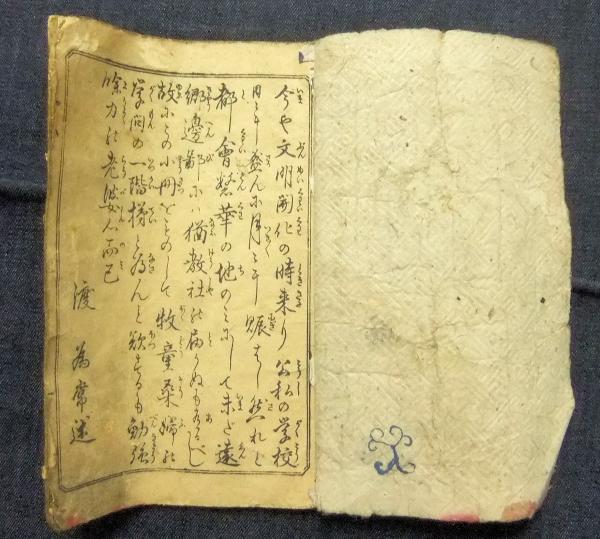 今や文明開化の時来り公私の学校
日々に盛んに月々に賑はし然れど
都會繁華の地のみにして未だ遠
郷邊鄙にハ猶教社の届かぬもあるべし
故にこの小冊をものして牧童桑婦の
学問の一階梯と為んと欲するも勉強
餘力の老婆心而已
渡 為常述